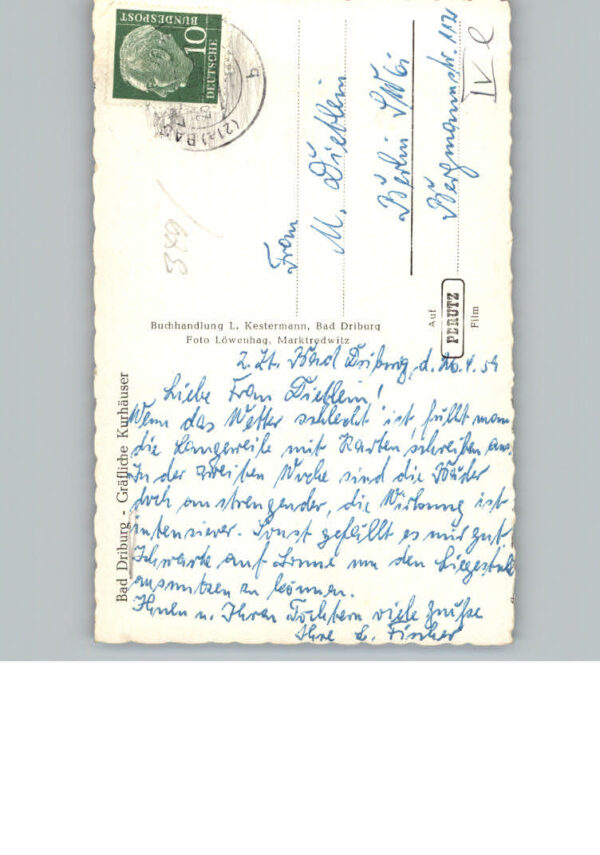 DEUTSCHE
BUNDESPOST
10
(21a) BAD
349
IV e
Frau
M. Dietlein
Berlin SW 61
Bergmannstr. 112
Auf
PERUTZ
Film
Buchhandlung L. Kestermann, Bad Driburg
Foto Löwenhag, Marktredwitz
Bad Driburg - Gräfliche Kurhäuser
z. Zt. Bad Driburg, d.
Liebe Frau Dietlein!
Wenn das Wetter schlecht ist, füllt man
die Langeweile mit Karten schreiben aus.
In der zweiten Woche sind die Bäder
doch anstrengender, die Wirkung ist
intensiver. Sonst gefällt es mir gut
Ich warte auf Sonne um den Liegestuhl
ausnutzen zu können.
Ihnen u. Ihren Töchtern viele Grüße
Ihre Fischer